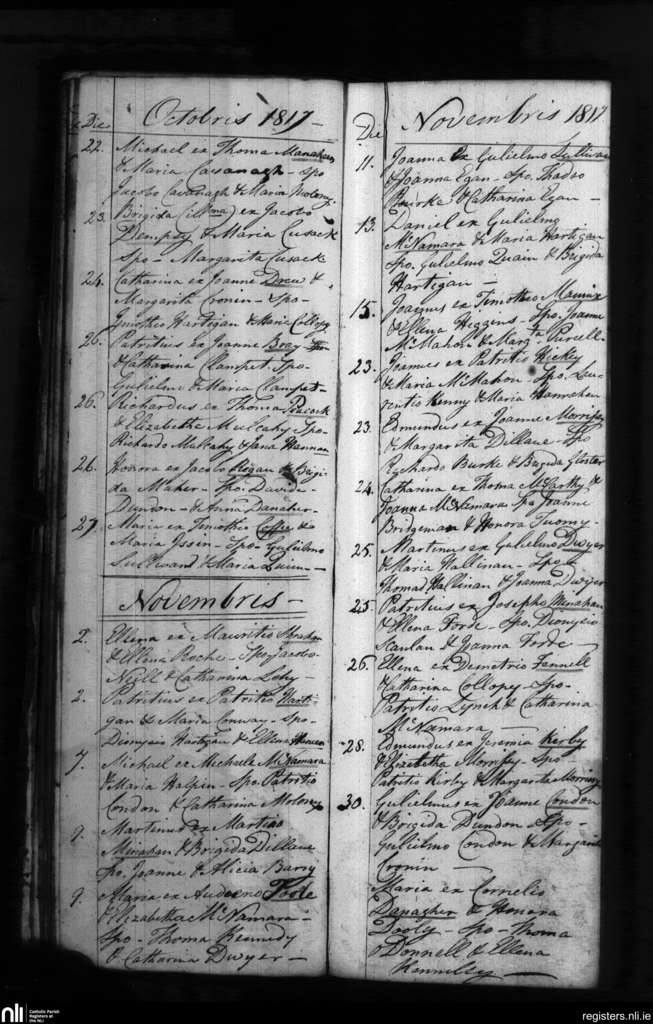 Die Octobris 1817 -
22. Michael ex Thoma Manahan
& Maria Cavanagh - Spo
Jacobo Cavanagh & Maria Molony
23. Brigida (illma) ex Jacobo
Dempsy & Maria Cusack
Spo - Margarita Cusack
24. Catharina ex Joanne Drew &
Margarita Cronin - Spo -
Timotheo Hartigan & Maria Collopy
26. Patritius ex Joanne Bray
& Catharina Clampet. Spo.
Gulielmo & Maria Clampet -
26. Richardus ex Thoma Peacock
& Elizabetha Mulcahy Spo -
Richardo Mulcahy & Jana Hannan
26. Honora ex Jacobo Regan & Brigi
da Maher - Spo. Davide
Dundon - & Anna Danaher -
27. Maria ex Timotheo Coffee &
Maria - Spo - Gulielmo
Sullivan & Maria Quinn -
Novembris -
2. Ellena ex Mauritio Abraham
& Ellena Roche - Spo. Jacobo
Neill & Catharina Lehy -
2. Patritius ex Patritio Harti
gan & Maria Conway - Spo -
Dionysio Hartigan & Ellena
7. Michael ex Michaele McNamara
& Maria Halpin - Spo. Patritio
Condon & Catharina Molony
9. Martinus ex Martino
Minahan & Brigida Dillane
Spo. Joanne & Alicia Barry
9. Maria ex Audoeno Poole
& Elizabetha McNamara -
Spo - Thoma Kennedy
& Catharina Dwyer -
Die Novembris 1817
11. Joanna ex Gulielmo Sullivan
& Joanna Egan - Spo. Thadeo
Bourke & Catharina Egan -
13. Daniel ex Gulielmo
McNamara & Maria Hartigan
Spo. Gulielmo Quain & Brigida
Hartigan -
15. Joannes ex Timotheo
& Ellena Higgins - Spo. Joanne
McMahon & Margta Purcell
23. Joannes ex Patritio Hickey
& Maria McMahon - Spo. Lau
rentio Kenny & Maria Hanrahan
23. Edmundus ex Joanne Morrisy
& Margarita Dillane - Spo
Richardo Burke & Brigida Gloster
24. Catharina ex Thoma McCarthy &
Joanna McNamara Spo Joanne
Bridgeman & Honora Tuomy -
25. Martinus ex Gulielmo Dwyer
& Maria Hallinan - Spo -
Thomas Hallinan & Joanna Dwyer
25. Patritius ex Josepho Minahan
& Ellena Forde - Spo. Dionysio
Scanlan & Joanna Forde -
26. Ellena ex Demetrio Fennell
& Catharina Collopy - Spo -
Patritio Lynch & Catharina
McNamara -
28. Edmundus ex Jeremia Kirby
& Elizabetha Morrisy - Spo
Patritio Kirby & Margarita Morrisy
30. Gulielmus ex Joanne Condon
& Brigida Dundon - Spo -
Gulielmo Condon & Margarita
Cronin -
Maria ex Cornelio
Danagher & Honora
Dooly - Spo - Thoma
O Donnell & Ellena
Kennelly -
nli
Catholic Parish
Registers at
the NLI
registers.nli.ie